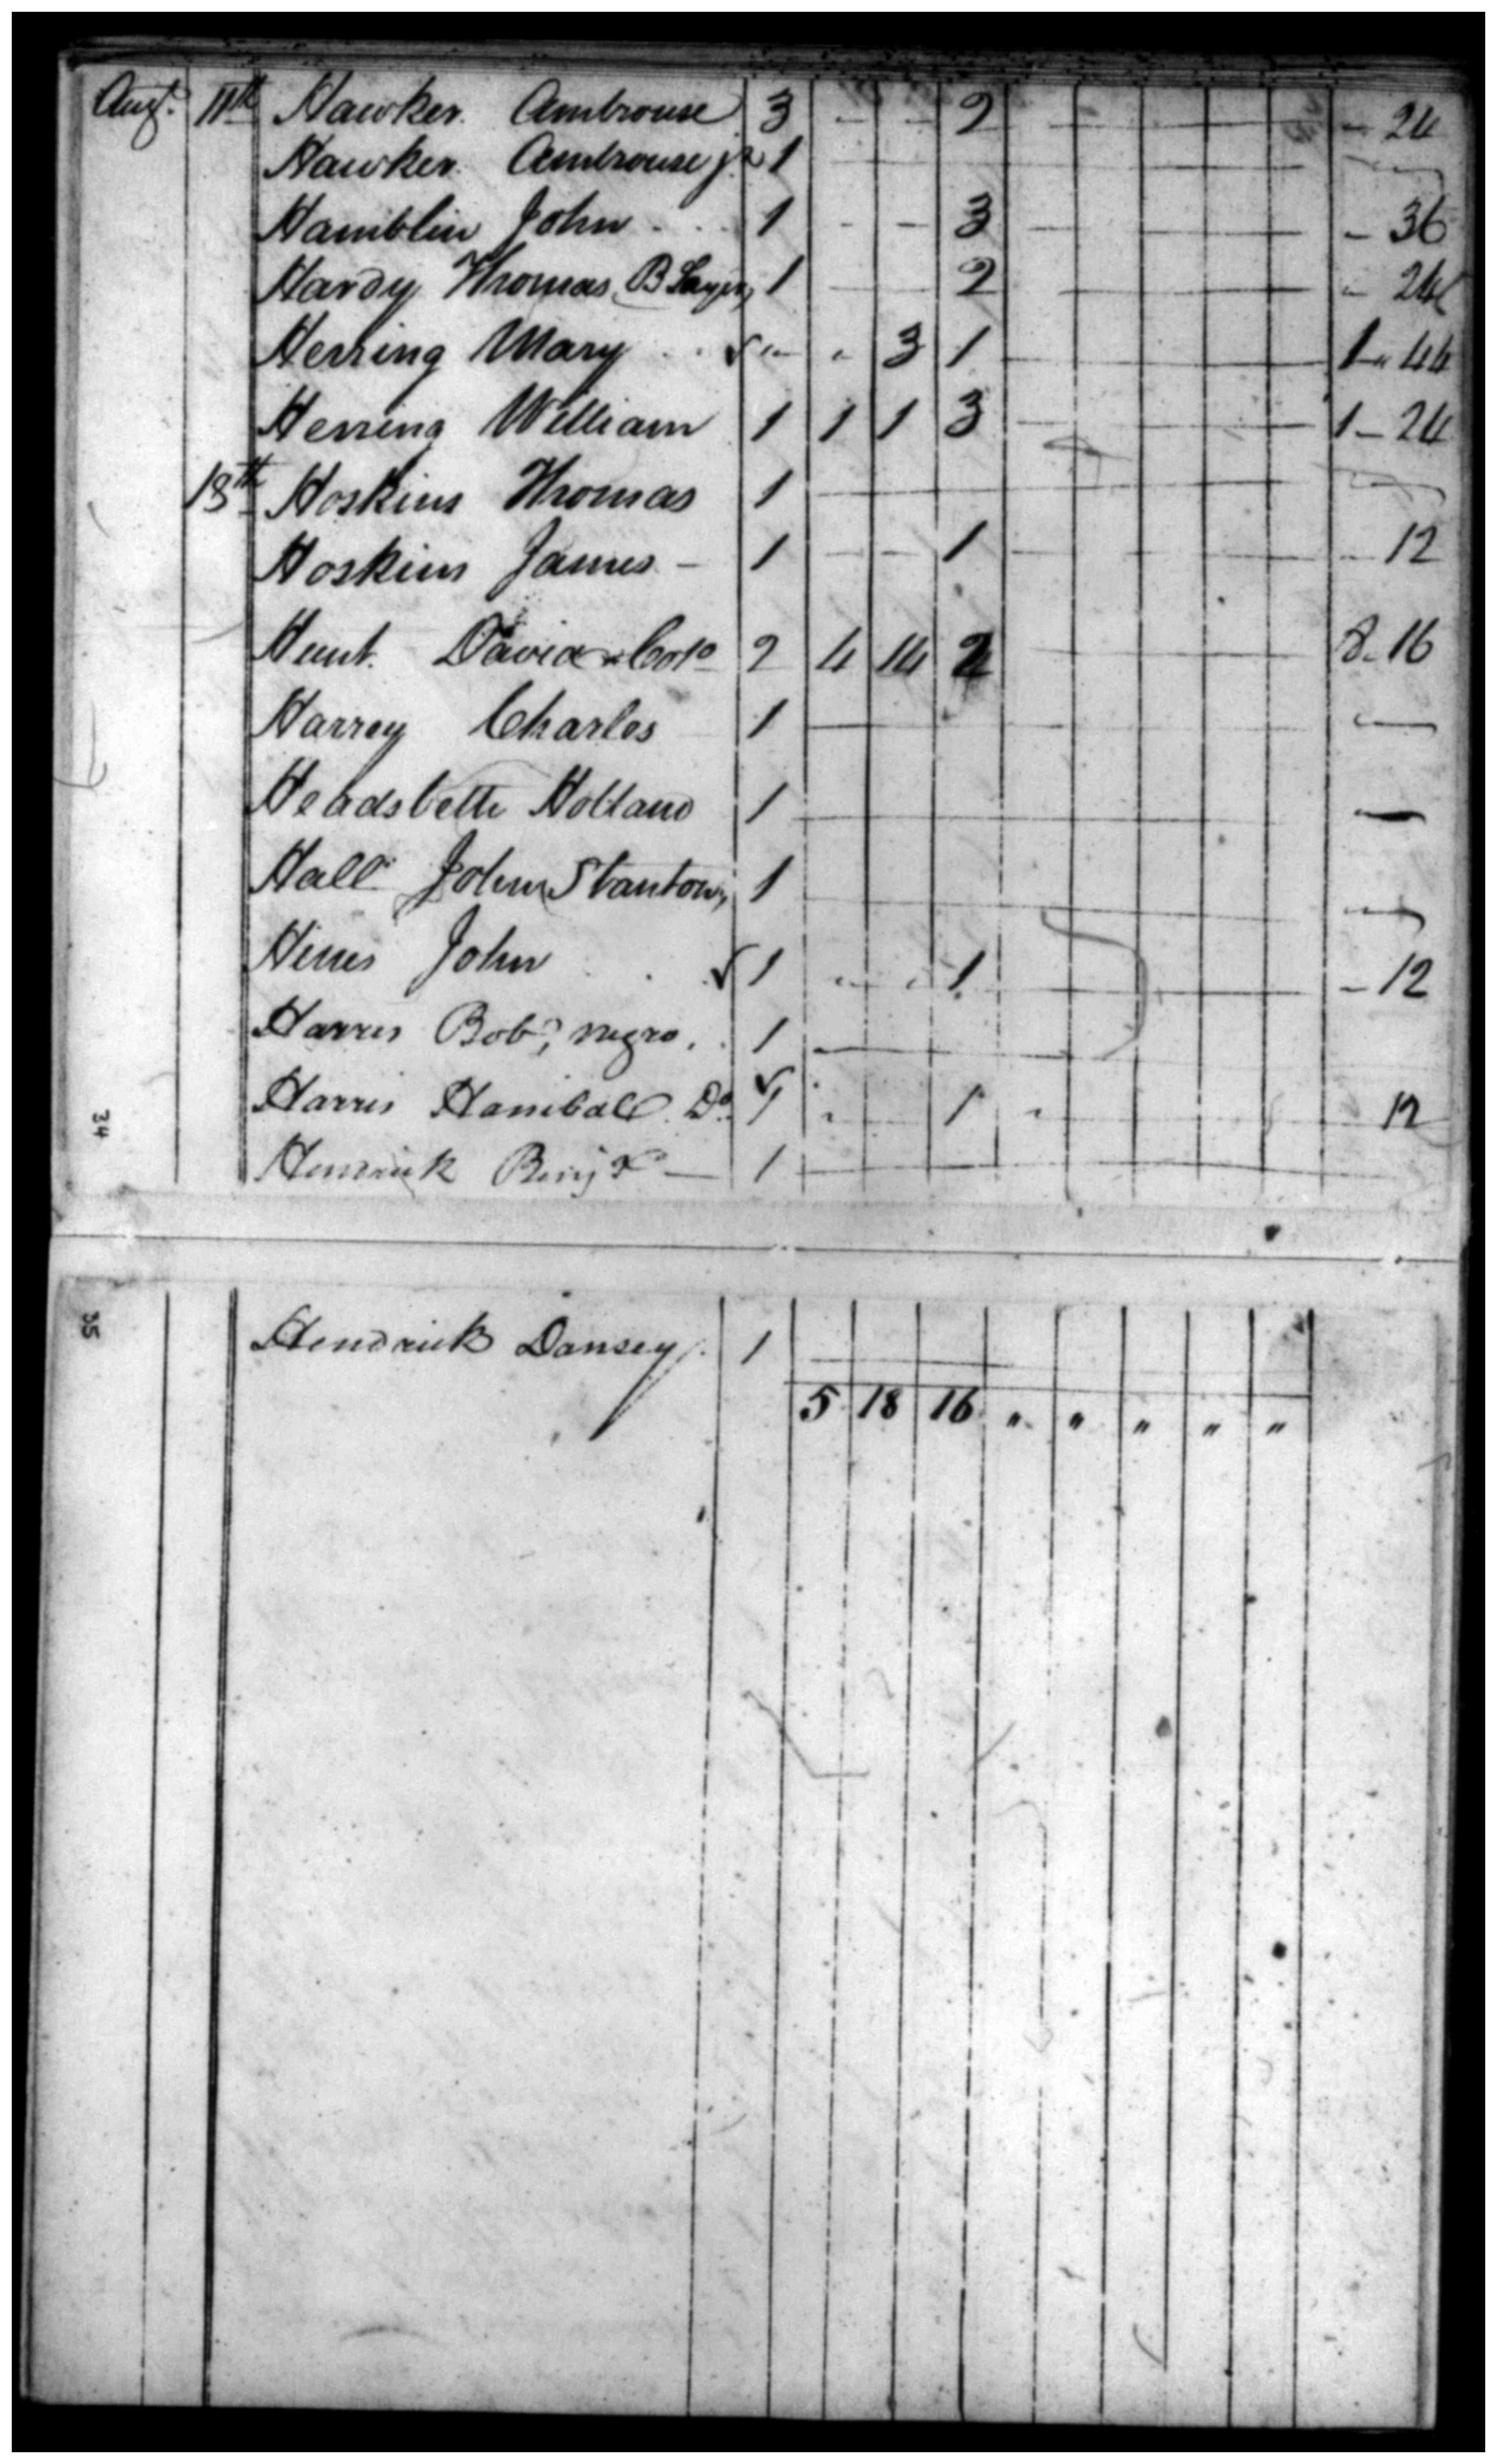 Augt. 11th Hawker Ambrouse 3 - - 2 - 24
Hawker Ambrouse jr 1
Hamblin John 1 - - 3 - 36
Hardy Thomas, B Layer, 1 2 - 24
Herring Mary " " 3 1 1 " 44
Herring William 1 1 1 3 1 - 24
18th Hoskins Thomas 1
Hoskins James - 1 - - 1 12
Hunt David 2 4 14 2 8 - 16
Harrey Charles 1
Holland 1
Hall John Stanton, 1
Hines John 1 " " 1 - 12
Harris Bob, negro. 1
Harris Hanibal Do. 1 " 1 " 12
Hendrick Benj 1
34
35
Hendrick Dansey 1
5 18 16 " " " " "